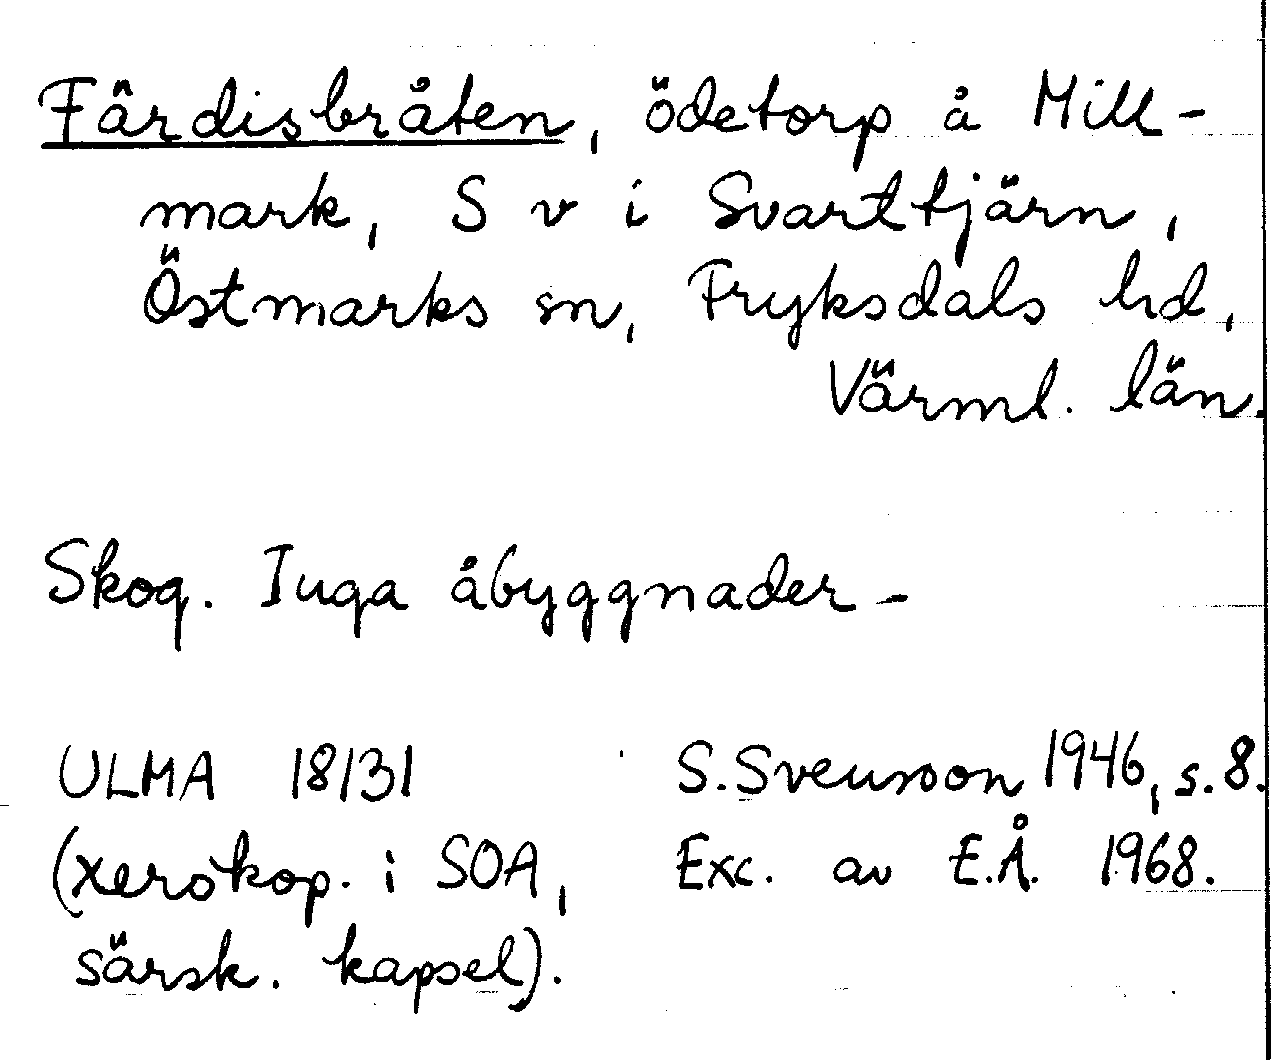 Färdisbråten, ödetorp å Mill-
mark, S v i Svarttjärn,
Östmarks sn, Fryksdals hd,
Värml. län.
Skog. Inga åbyggnader -
ULMA 18131 S. Svenson 1946, s. 8.
(xerokop. i SOA, Exc. av E.Å. 1968.
särsk. kapsel).